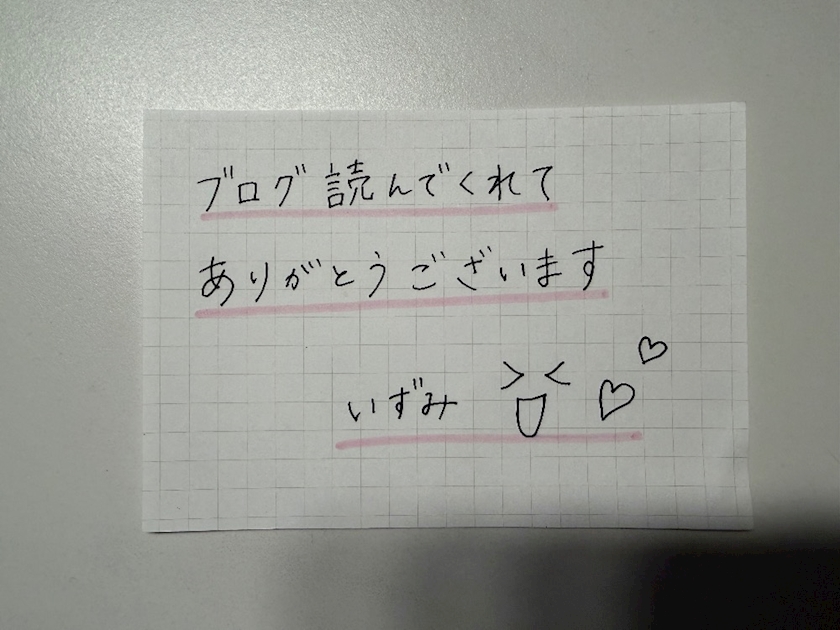 ブログ読んでくれて
ありがとうございます
いずみ ><♡♡